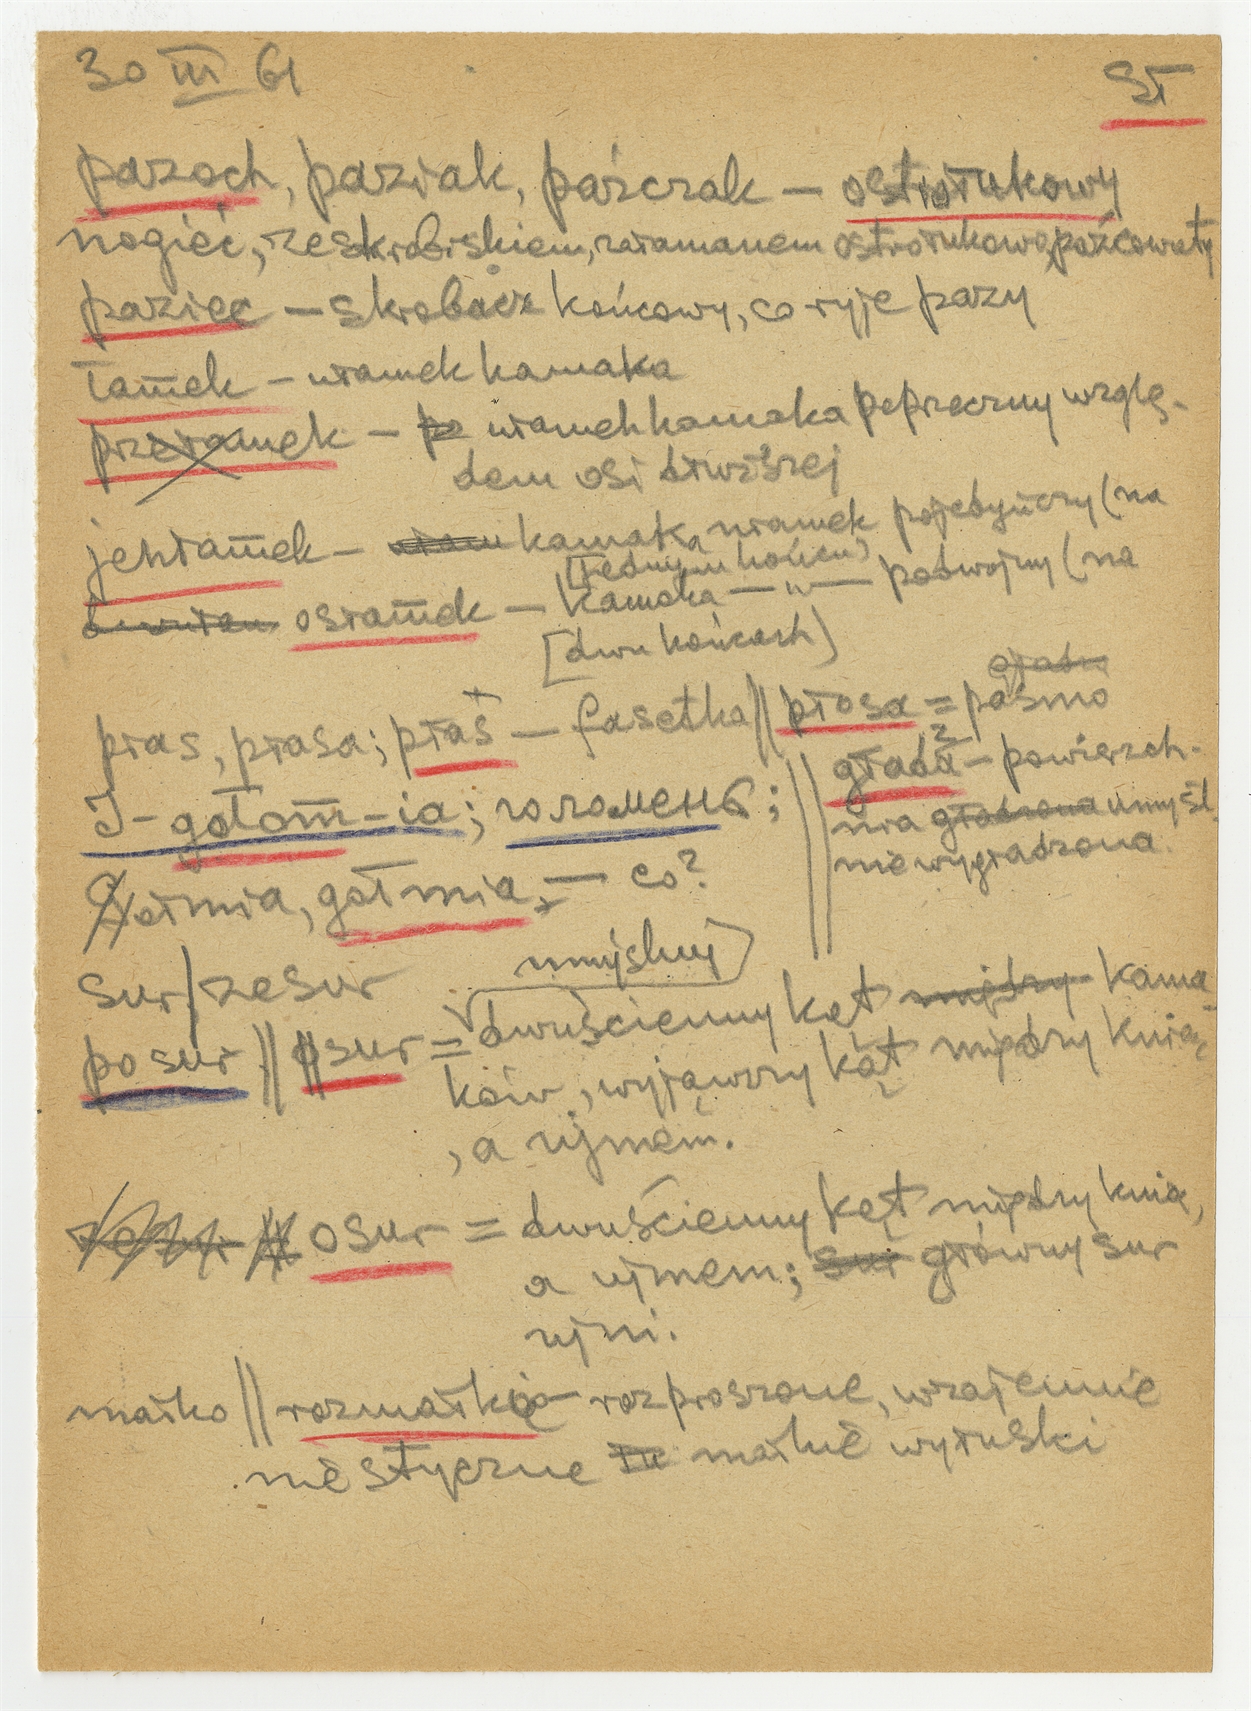 30 III 61
SŁ
pazoch, paziak, pazczak — ostrołukowy
nogieć, ze skrobiskiem, załamanem ostrołukowo, pazcowaty
paziec — skrobacz końcowy, co ryje pazy
łamek — ułamek kamaka
przełamek — po ułamek kamaka poprzeczny wzglę-
dem osi dłuższej
jenłamek — ułam kamaka ułamek pojedyńczy (na
[jednym końcu)
osłamek — kamaka —„— podwójny (na
[dwu końcach)
płas, płasa; płaś — fasetka || płosa = pasmo
gładź
głada — powierzch-
nia gładzona umyśl
nie wygładzona.
J-gołom-ia; головень;
Gołmia, gołmia, — co?
sur/zesur
umyślny
posur || osur = dwuścienny kąt między kama-
ków, wyjąwszy kąt między knią,
, a ujmem.
zesur || osur = dwuścienny kąt między knią,
a ujmem; sur główny sur
ujni.
małko || rozmałkie — rozproszone, wzajemnie
niestyczne małkie wyłuski